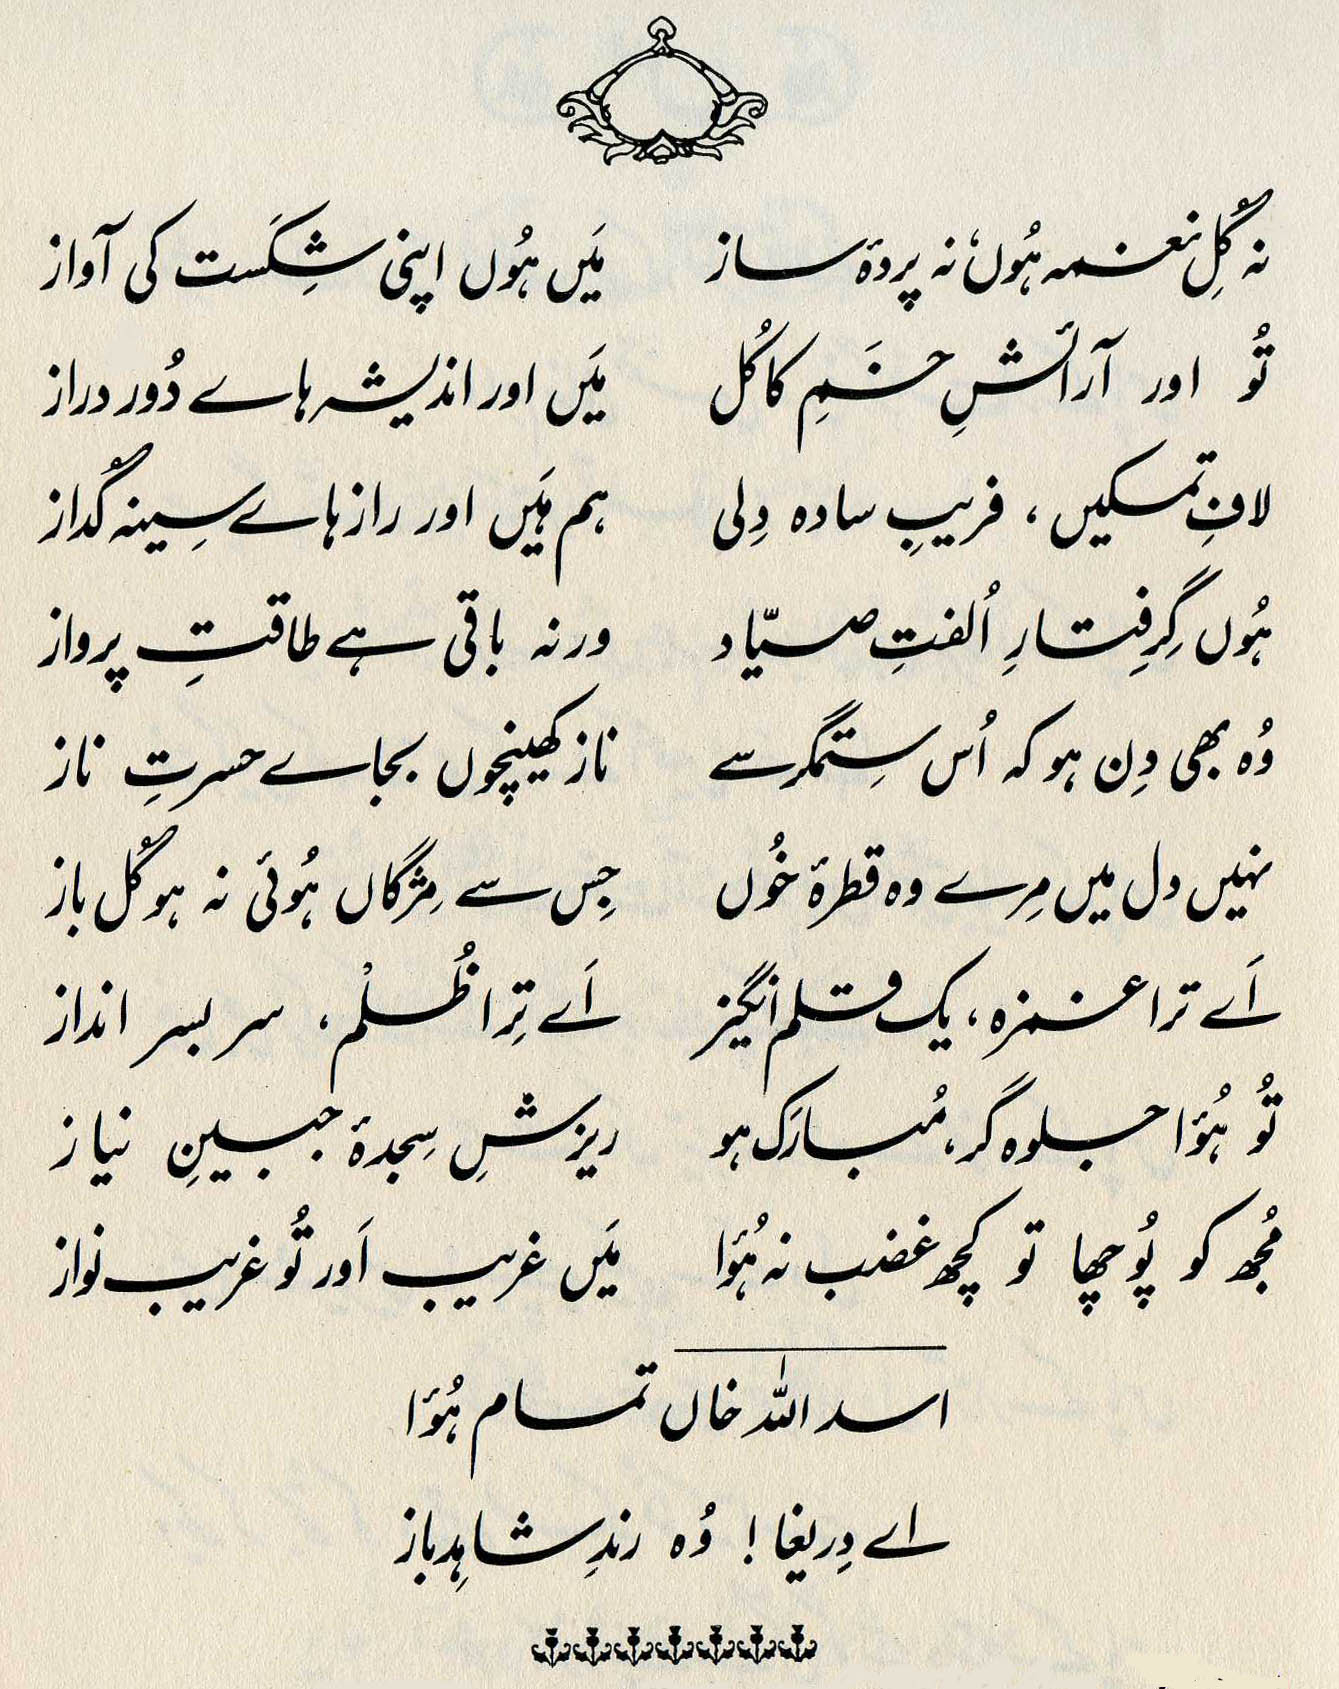 نہ گُلِ نغمہ ہُوں، نہ پردۂ ساز مَیں ہُوں اپنی شِکَست کی آواز
تُو اور آرائشِ خَمِ کاکُل مَیں اور اندیشہ ہاے دُور دراز
لافِ تمکیں، فریبِ سادہ دِلی ہم ہَیں اور راز ہاے سِینہ گُداز
ہُوں گِرِفتارِ اُلفتِ صیّاد ورنہ باقی ہے طاقتِ پرواز
وُہ بھی دِن ہو کہ اُس سِتمگر سے ناز کھینچوں بجاے حسرتِ ناز
نہیں دل میں مِرے وہ قطرۂ خُوں جِس سے مِژگاں ہُوئی نہ ہو گُل باز
اَے ترا غمزہ، یک قلم انگیز اَے تِرا ظُلْم، سر بسر انداز
تُو ہُؤا جلوہ گر، مُبارَک ہو ریزشِ سِجدۂ جبینِ نیاز
مُجھ کو پُوچھا تو کچھ غضب نہ ہُؤا مَیں غریب اَور تُو غریب نواز
اسد اللہ خاں تمام ہُؤا
اے دِریغا! وُہ رندِ شاہِد باز